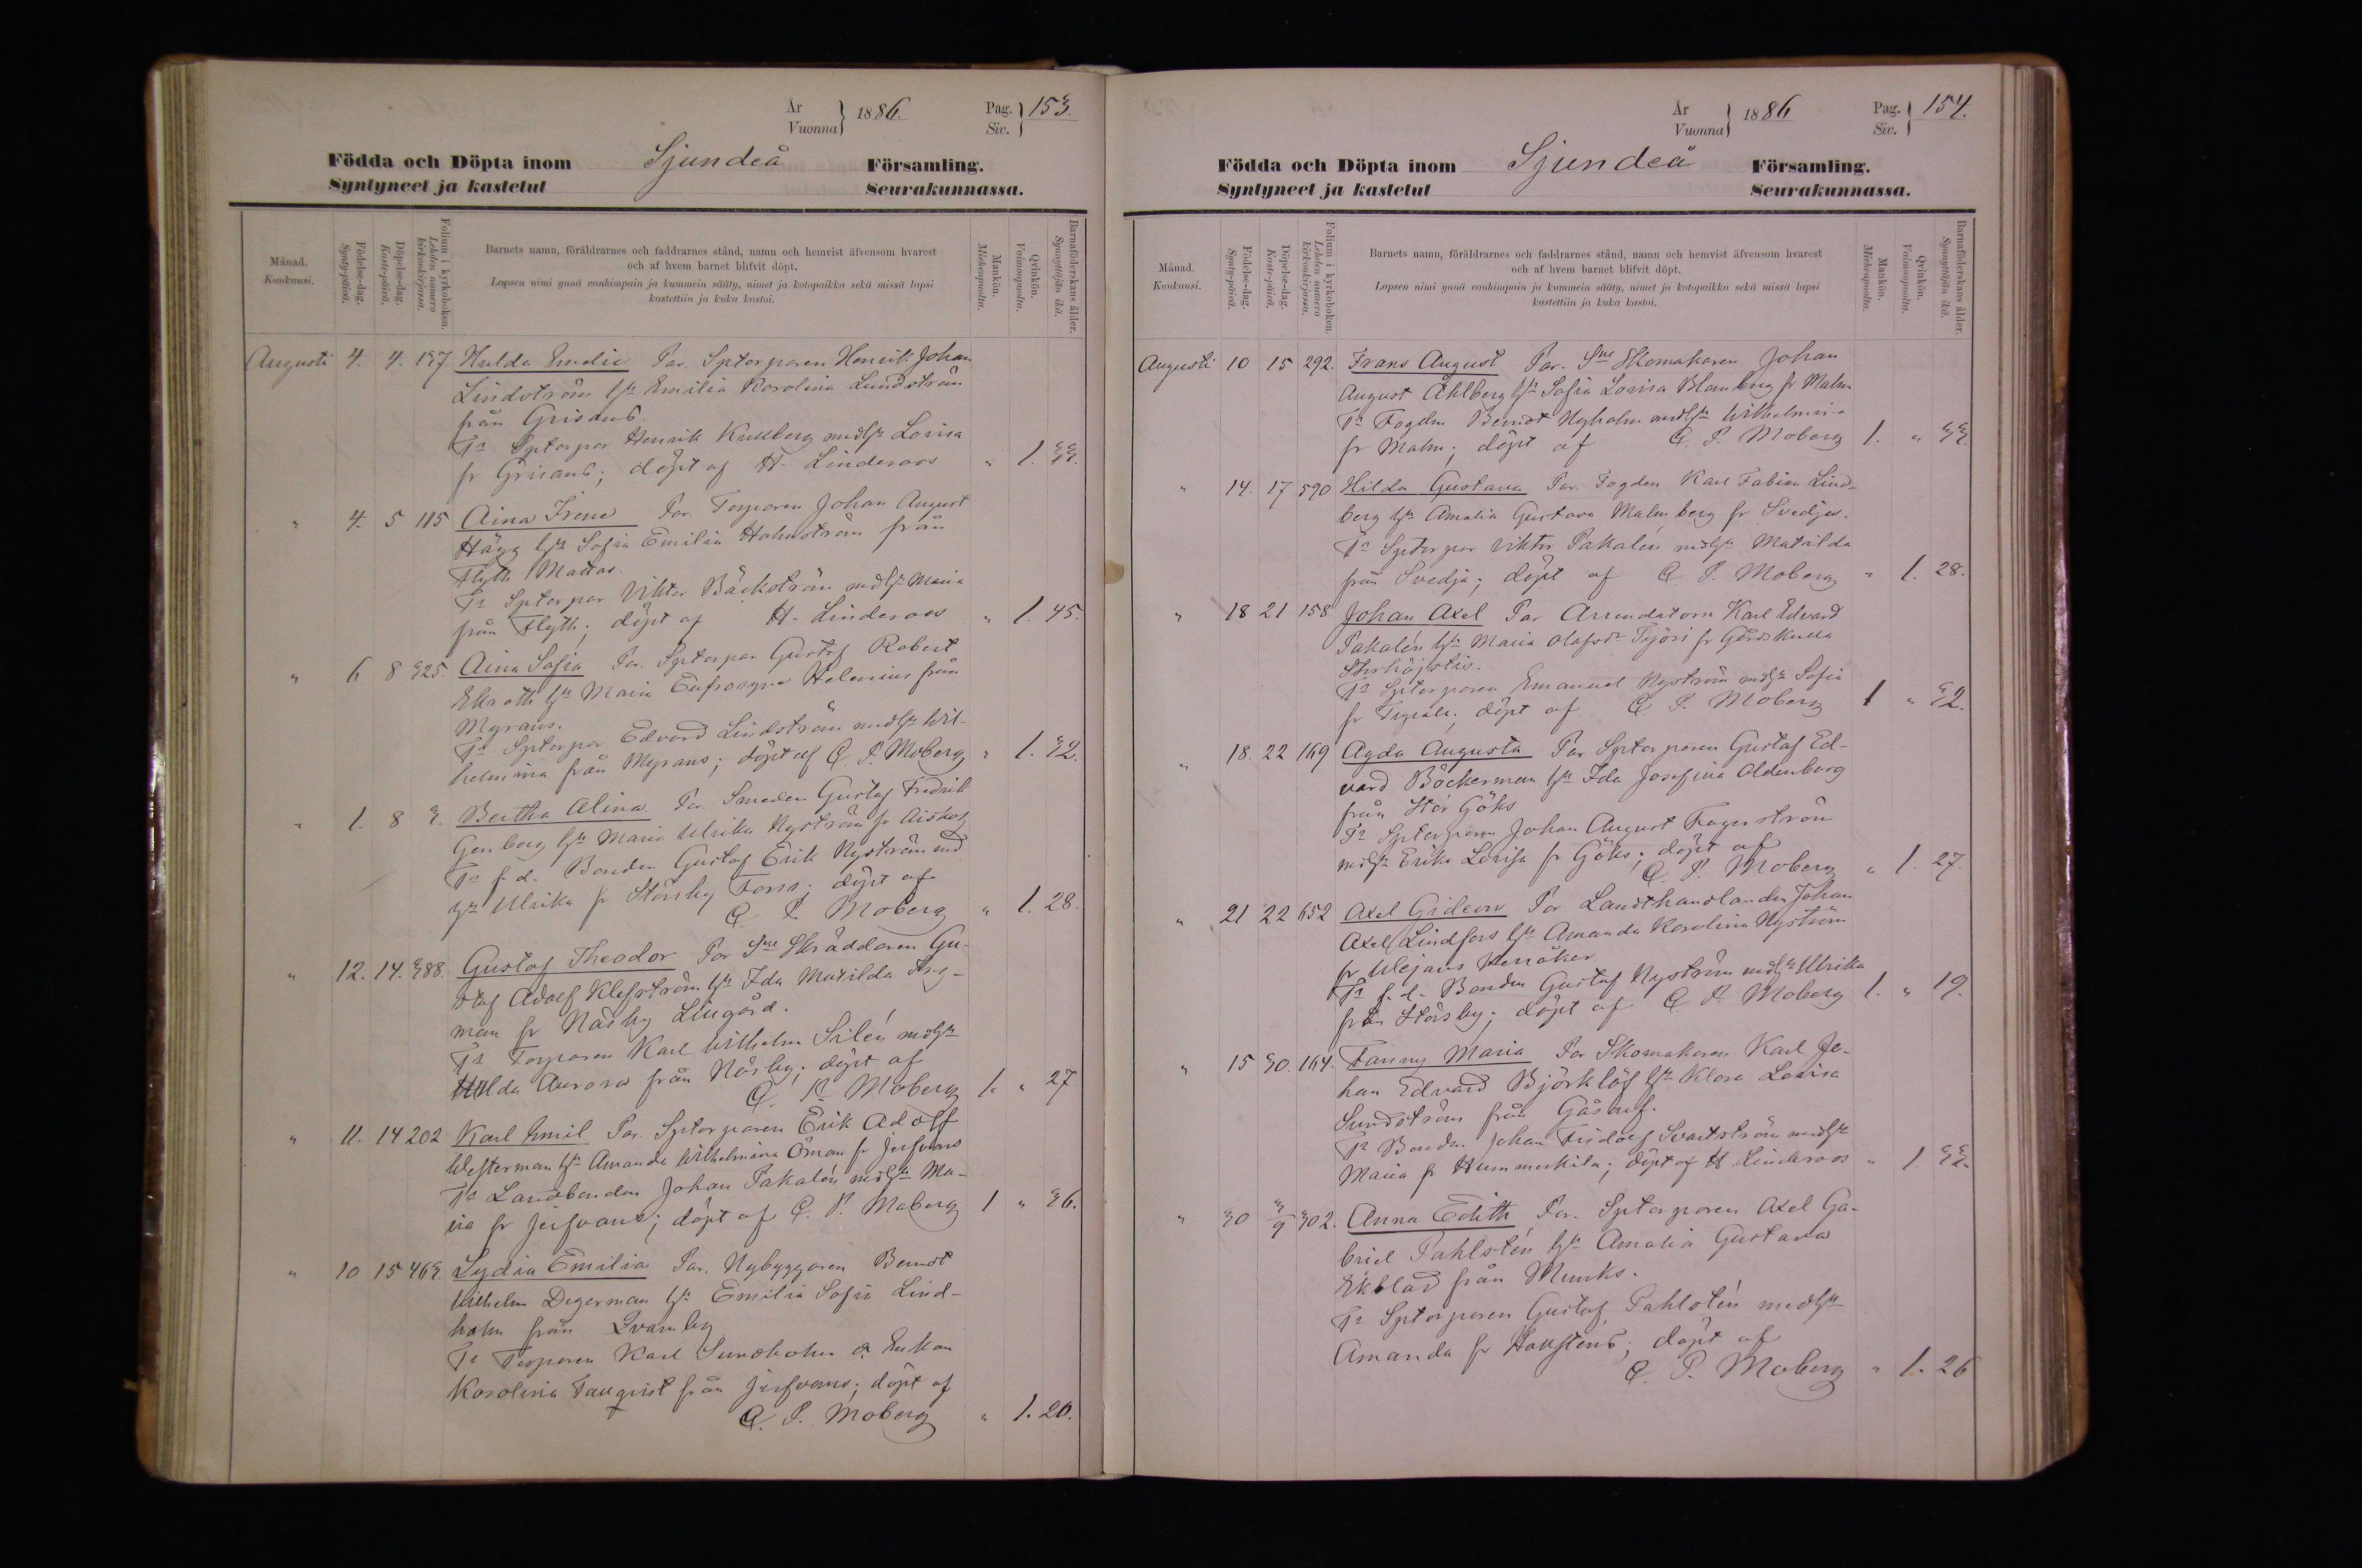 År
Vuonna } 1886. Pag.
Siv. } 153.
Födda och Döpta inom Sjundeå Församling.
Syntyneet ja kastetut Seurakunnassa.
Månad. Kuukausi.
Födelse-dag. Synty-päivä.
Döpelse-dag. Kaste-päivä.
Folium i kyrkoboken. Lehden numero kirkonkirjassa.
Barnets namn, föräldrarnes och faddrarnes stånd, namn och hemvist äfvensom hvarest
och af hvem barnet blifvit döpt.
Lapsen nimi ynnä vanhimpain ja kummein sääty, nimet ja kotopaikka sekä missä lapsi
kastettiin ja kuka kastoi.
Mankön. Miehenpuolta.
Qvinkön. Vaimonpuolta.
Barnaföderskans ålder. Synnyttäjän ikä.
Augusti 4. 4. 137 Hulda Emilie Par. Sptorparen Henrik Johan
Lindström hst Emilia Karolina Lundström
från Grisans.
Ts Sptorpar Henrik Kullberg mdhst Lovisa
fr Grisans; döpt af H. Linderoos " 1. 33.
" 4. 5 115 Aina Irene Par. Torparen Johan August
Hägg hst Sofia Emilia Holmström från
Flyth Mattas.
Ts Sptorpar Viktor Bäckström mdhst Maria
från Flyth; döpt af H. Linderoos " 1. 45.
" 6 8 325. Aina Sofia Par. Sptorpar Gustaf Robert
Ekroth hst Maria Eufrosyne Helenius från
Myrans.
Ts Sptorpar Edvard Lindström mdhst Wil-
helmina från Myrans; döpt af C. P. Moberg " 1. 32.
" 1. 8 3. Bertha Alina Par. Smeden Gustaf Fredrik
Genberg hst Maria Ulrika Nyström fr Aiskog
Ts f.d. Bonden Gustaf Erik Nyström md
hst Ulrika fr Störsby Forss; döpt af
C. P. Moberg " 1. 28.
" 12. 14. 388. Gustaf Theodor Par Sne Skräddaren Gu-
staf Adolf Klefström hst Ida Matilda
man fr Näsby Lillgård.
Ts Torparen Karl Wilhelm Silén mdhst
Hulda Aurora från Näsby; döpt af
C. P. Moberg 1. " 27
" 11. 14 202 Karl Emil Par. Sptorparen Erik Adolf
Westerman hst Amanda Wilhelmina Öman fr Jerfvans
Ts Landbonden Johan Pakalén mdhst Ma-
ria fr Jerfvans; döpt af C. P. Moberg 1 " 36.
" 10 15 463. Lydia Emilia Par. Nybyggaren Berndt
Wilhelm Degerman hst Emilia Sofia Lind-
holm från Qvarnby
Ts Torparen Karl Sundholm o. Enkan
Karolina Tauqvist från Jerfvans; döpt af
C. P. Moberg " 1. 20.
År
Vuonna } 1886 Pag.
Siv. } 154.
Födda och Döpta inom Sjundeå Församling.
Syntyneet ja kastetut Seurakunnassa.
Månad. Kuukausi.
Födelse-dag. Synty-päivä.
Döpelse-dag. Kaste-päivä.
Folium i kyrkoboken. Lehden numero kirkonkirjassa.
Barnets namn, föräldrarnes och faddrarnes stånd, namn och hemvist äfvensom hvarest
och af hvem barnet blifvit döpt.
Lapsen nimi ynnä vanhimpain ja kummein sääty, nimet ja kotopaikka sekä missä lapsi
kastettiin ja kuka kastoi.
Mankön. Miehenpuolta.
Qvinkön. Vaimonpuolta.
Barnaföderskans ålder. Synnyttäjän ikä.
Augusti 10 15 292. Frans August Par. Sne Skomakaren Johan
August Åhlberg hst Sofia Lovisa Blomberg fr Malm
Ts Fogden Berndt Nyholm mdhst Wilhelmina
fr Malm; döpt af C. P. Moberg 1. " 33.
" 14. 17 590 Hilda Gustava Par. Fogden Karl Fabian Lind-
berg hst Amalia Gustava Malmberg fr Svedja.
Ts Sptorpar Viktor Pakalén mdhst Matilda
från Svedja; döpt af C. P. Moberg " 1. 28.
" 18 21 158 Johan Axel Par Arrendatorn Karl Edvard
Pakalén hst Maria Olafsdr Tjöri fr Gårdskulla
Ts Sptorparen Emanuel Nyström mdhst Sofia
fr döpt af C. P. Moberg 1 " 32.
" 18. 22 169 Agda Augusta Par Sptorparen Gustaf Ed-
vard Böckerman hst Ida Josefina Oldenborg
från Stor Göks
Ts Sptorparen Johan August Fagerström
mdhst Erika Lovisa fr Göks; döpt af
C. P. Moberg " 1. 27.
" 21 22 652 Axel Gideon Par Landthandlanden Johan
Axel Lindfors hst Amanda Karolina Nyström
fr
Ts f.d. Bonden Gustaf Nyström mdhst Ulrika
från Störsby; döpt af C. P. Moberg 1. " 19.
" 15 30. 164. Fanny Maria Par Skomakaren Karl Jo-
han Edvard Björklöf hst Klara Lovisa
Sundström från Gåsarf.
Ts Bonden Johan Fridolf Svartström mdhst
Maria fr Hummerkila; döpt af H Linderoos " 1. 33.
" 30 3/9 302. Anna Edith Par. Sptorparen Axel Ga-
briel Pahlstén hst Amalia Gustava
Ekblad från Munks.
Ts Sptorparen Gustaf Pahlstén mdhst
Amanda fr Hollstens; döpt af
C. P. Moberg " 1. 26